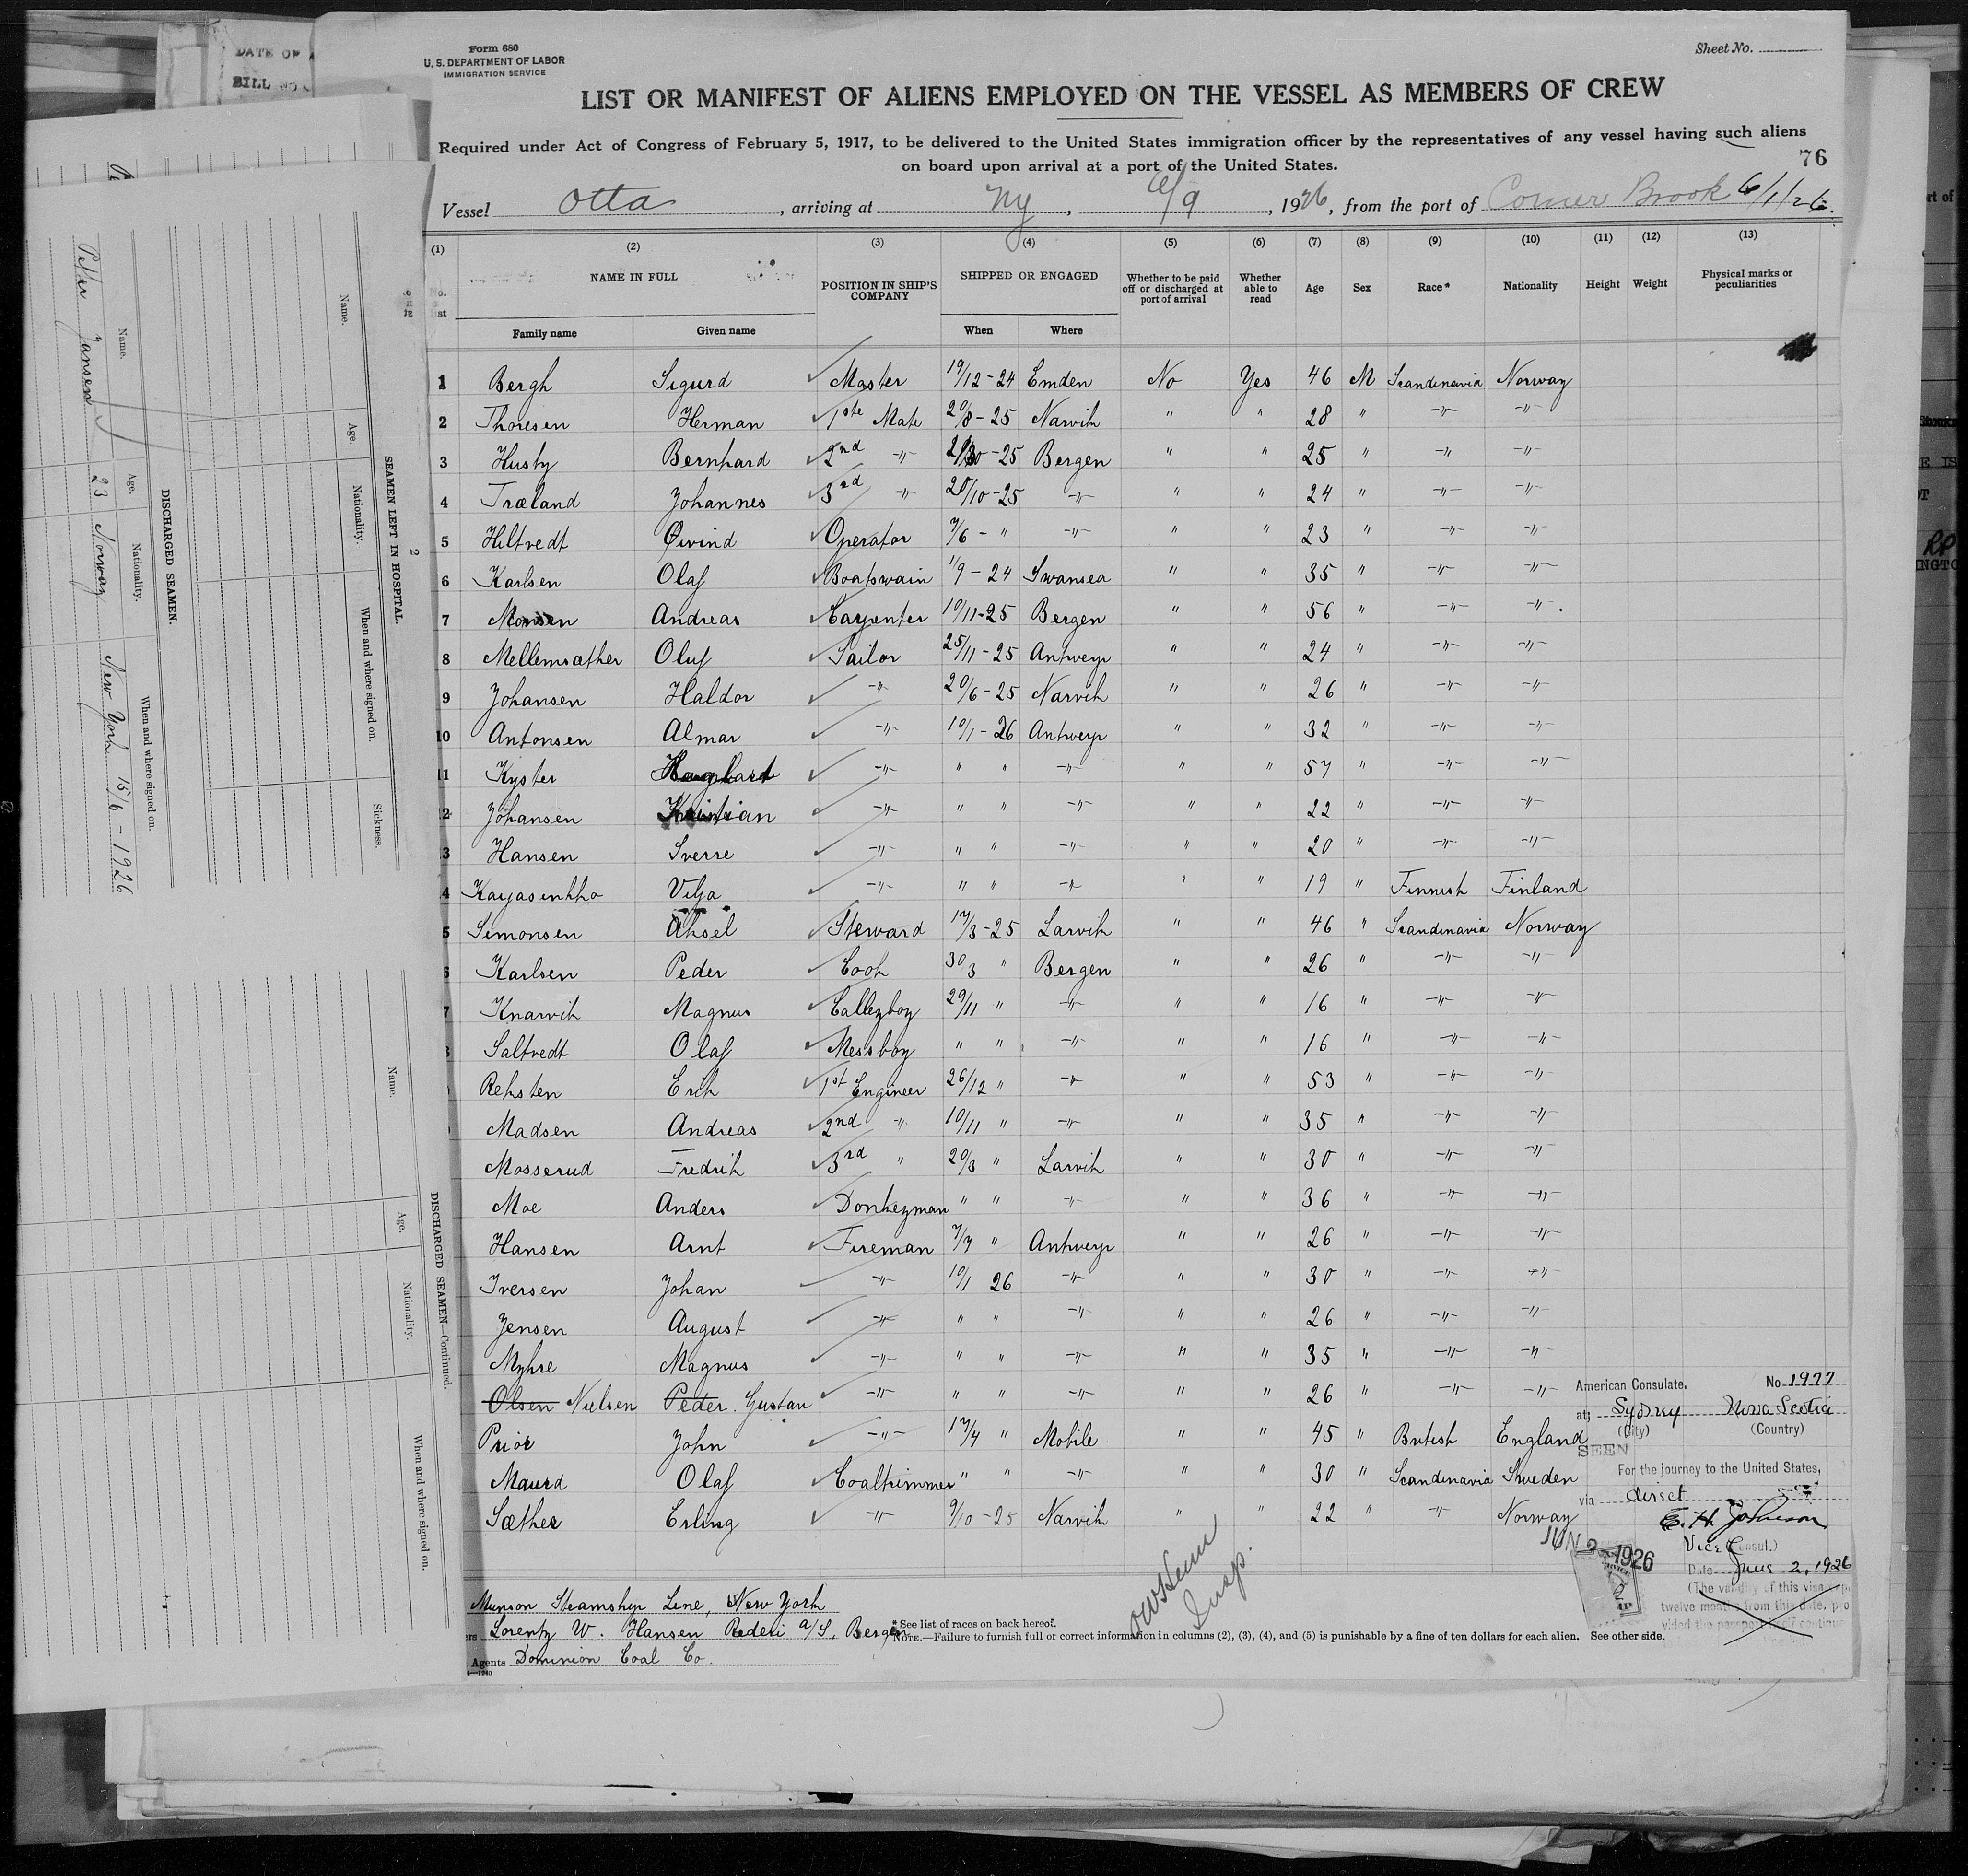 DATE OF
BILL NO
Form 680
U. S. DEPARTMENT OF LABOR
IMMIGRATION SERVICE
Sheet No.
LIST OR MANIFEST OF ALIENS EMPLOYED ON THE VESSEL AS MEMBERS OF CREW
Required under Act of Congress of February 5, 1917, to be delivered to the United States immigration officer by the representatives of any vessel having such aliens
on board upon arrival at a port of the United States.
76
Vessel Otta, arriving at Ny, 6/9, 1926, from the port of Corner Brook 6/1/26.
(1) (2) (3) (4) (5) (6) (7) (8) (9) (10) (11) (12) (13)
NAME IN FULL POSITION IN SHIP'S COMPANY SHIPPED OR ENGAGED Whether to be paid off or discharged at port of arrival Whether able to read Age Sex Race* Nationality Height Weight Physical marks or peculiarities
Family name Given name When Where
1 Bergh Sigurd Master 19/12-24 Emden No Yes 46 M Scandinavia Norway
2 Thoresen Herman 1ste Mate 20/8-25 Narvik " " 28 " -"- -"-
3 Husby Bernhard 2nd -"- Bergen " " 25 " -"- -"-
4 Træland Johannes 3rd -"- 20/10-25 -"- " " 24 " -"- -"-
5 Hiltvedt Øivind Operator 7/6 - " -"- " " 23 " -"- -"-
6 Karlsen Olaf Boatswain 1/9-24 Swansea " " 35 " -"- -"-
7 Monsen Andreas Carpenter 10/11-25 Bergen " " 56 " -"- -"-
8 Mellemsæther Oluf Sailor 25/11-25 Antwerp " " 24 " -"- -"-
9 Johansen Haldor -"- 20/6-25 Narvik " " 26 " -"- -"-
10 Antonsen Almar -"- 10/1-26 Antwerp " " 32 " -"- -"-
11 Kyster -"- " " -"- " " 57 " -"- -"-
2 Johansen Kristian -"- " " -"- " " 22 " -"- -"-
3 Hansen Sverre -"- " " -"- " " 20 " -"- -"-
4 Vilja -"- " " -"- " " 19 " Finnish Finland
5 Simonsen Aksel Steward 17/3-25 Larvik " " 46 " Scandinavia Norway
6 Karlsen Peder Cook 30/3 " Bergen " " 26 " -"- -"-
7 Knarvik Magnus Calleyboy 29/11 " -"- " " 16 " -"- -"-
8 Saltvedt Olaf Messboy " " -"- " " 16 " -"- -"-
Reksten Erik 1st Engineer 26/12 " -"- " " 53 " -"- -"-
Madsen Andreas 2nd -"- 10/11 " -"- " " 35 " -"- -"-
Mosserud Fredrik 3rd " 20/3 " Larvik " " 30 " -"- -"-
Moe Anders Donkeyman " " -"- " " 36 " -"- -"-
Hansen Arnt Fireman 7/7 " Antwerp " " 26 " -"- -"-
Iversen Johan -"- 10/1 26 -"- " " 30 " -"- -"-
Jensen August -"- " " -"- " " 26 " -"- -"-
Myhre Magnus -"- " " -"- " " 35 " -"- -"-
Olsen Nielsen Peder. Gustav -"- " " -"- " " 26 " -"- -"-
Prior John -"- 17/4 " Mobile " " 45 " British England
Maurd Olaf Coaltrimmer " " -"- " " 30 " Scandinavia Sweden
Sæther Erling -"- 9/10-25 Narvik " " 22 " -"- Norway
American Consulate. No. 1977
at; Sydney Nova Scotia
(City) (Country)
SEEN
For the journey to the United States,
via direct
E. H. Johnson
Vice (Consul.)
JUN 2-1926
Date June 2, 1926
(The validity of this visa
twelve months from this date, pro
vided the passport itself continue
Insp.
Munson Steamship Line, New York
Lorentz W. Hansen Rederi a/s, Bergen
Agents Dominion Coal Co.
* See list of races on back hereof.
NOTE.—Failure to furnish full or correct information in columns (2), (3), (4), and (5) is punishable by a fine of ten dollars for each alien. See other side.
2
SEAMEN LEFT IN HOSPITAL.
Name. Age. Nationality. When and where signed on. Sickness.
DISCHARGED SEAMEN.
Name. Age. Nationality. When and where signed on.
Petter Jansen 23 Norway New York 15/6-1926
DISCHARGED SEAMEN—Continued.
Name. Age. Nationality. When and where signed on.